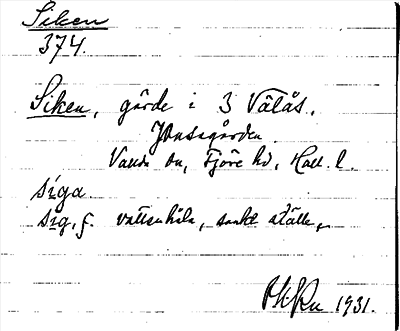 Siken
374.
Siken, gärde i 3 Välås.
Jonsagården.
Valda sn, Fjäre hd, Hall. l.
siga
sig, f. vattenhåla, sankt ställe.
1931.